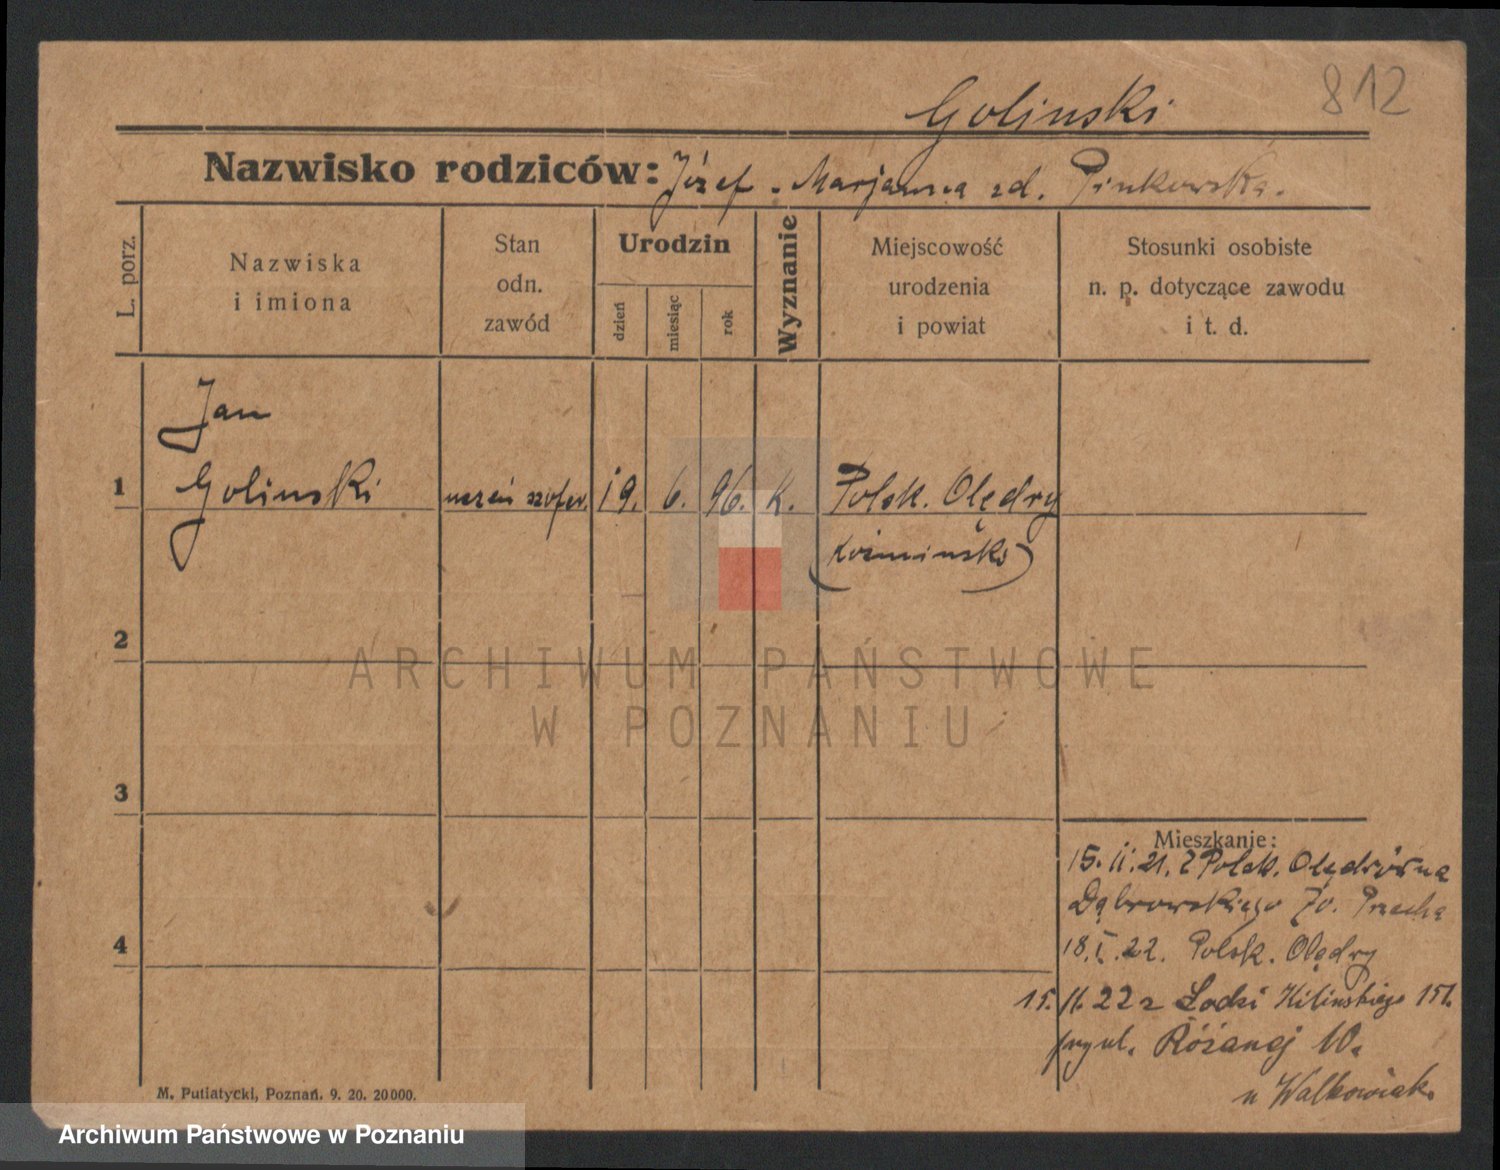 812
Golinski
Nazwisko rodziców: Józef - Marjanna zd. Pinkowska.
L. porz.
Nazwiska
i imiona
Stan
odn.
zawód
Urodzin
dzień
miesiąc
rok
Wyznanie
Miejscowość
urodzenia
i powiat
Stosunki osobiste
n. p. dotyczące zawodu
i t. d.
Jan
1 Golinski uczeń szofer. 19. 6. 96. K. Polsk. Olędry
(Koźmiński)
2
ARCHIWUM PAŃSTWOWE
W POZNANIU
3
Mieszkanie:
15. 11. 21. z Polsk. Olędrów na
Dąbrowskiego 70.
4
18. I. 22. Polsk. Olędry
15. 11. 22 z Łodzi Kilińskiego 151.
przy ul. Różanej 10.
u Walkowiak.
M. Putiatycki, Poznań. 9. 20. 20000.
Archiwum Państwowe w Poznaniu